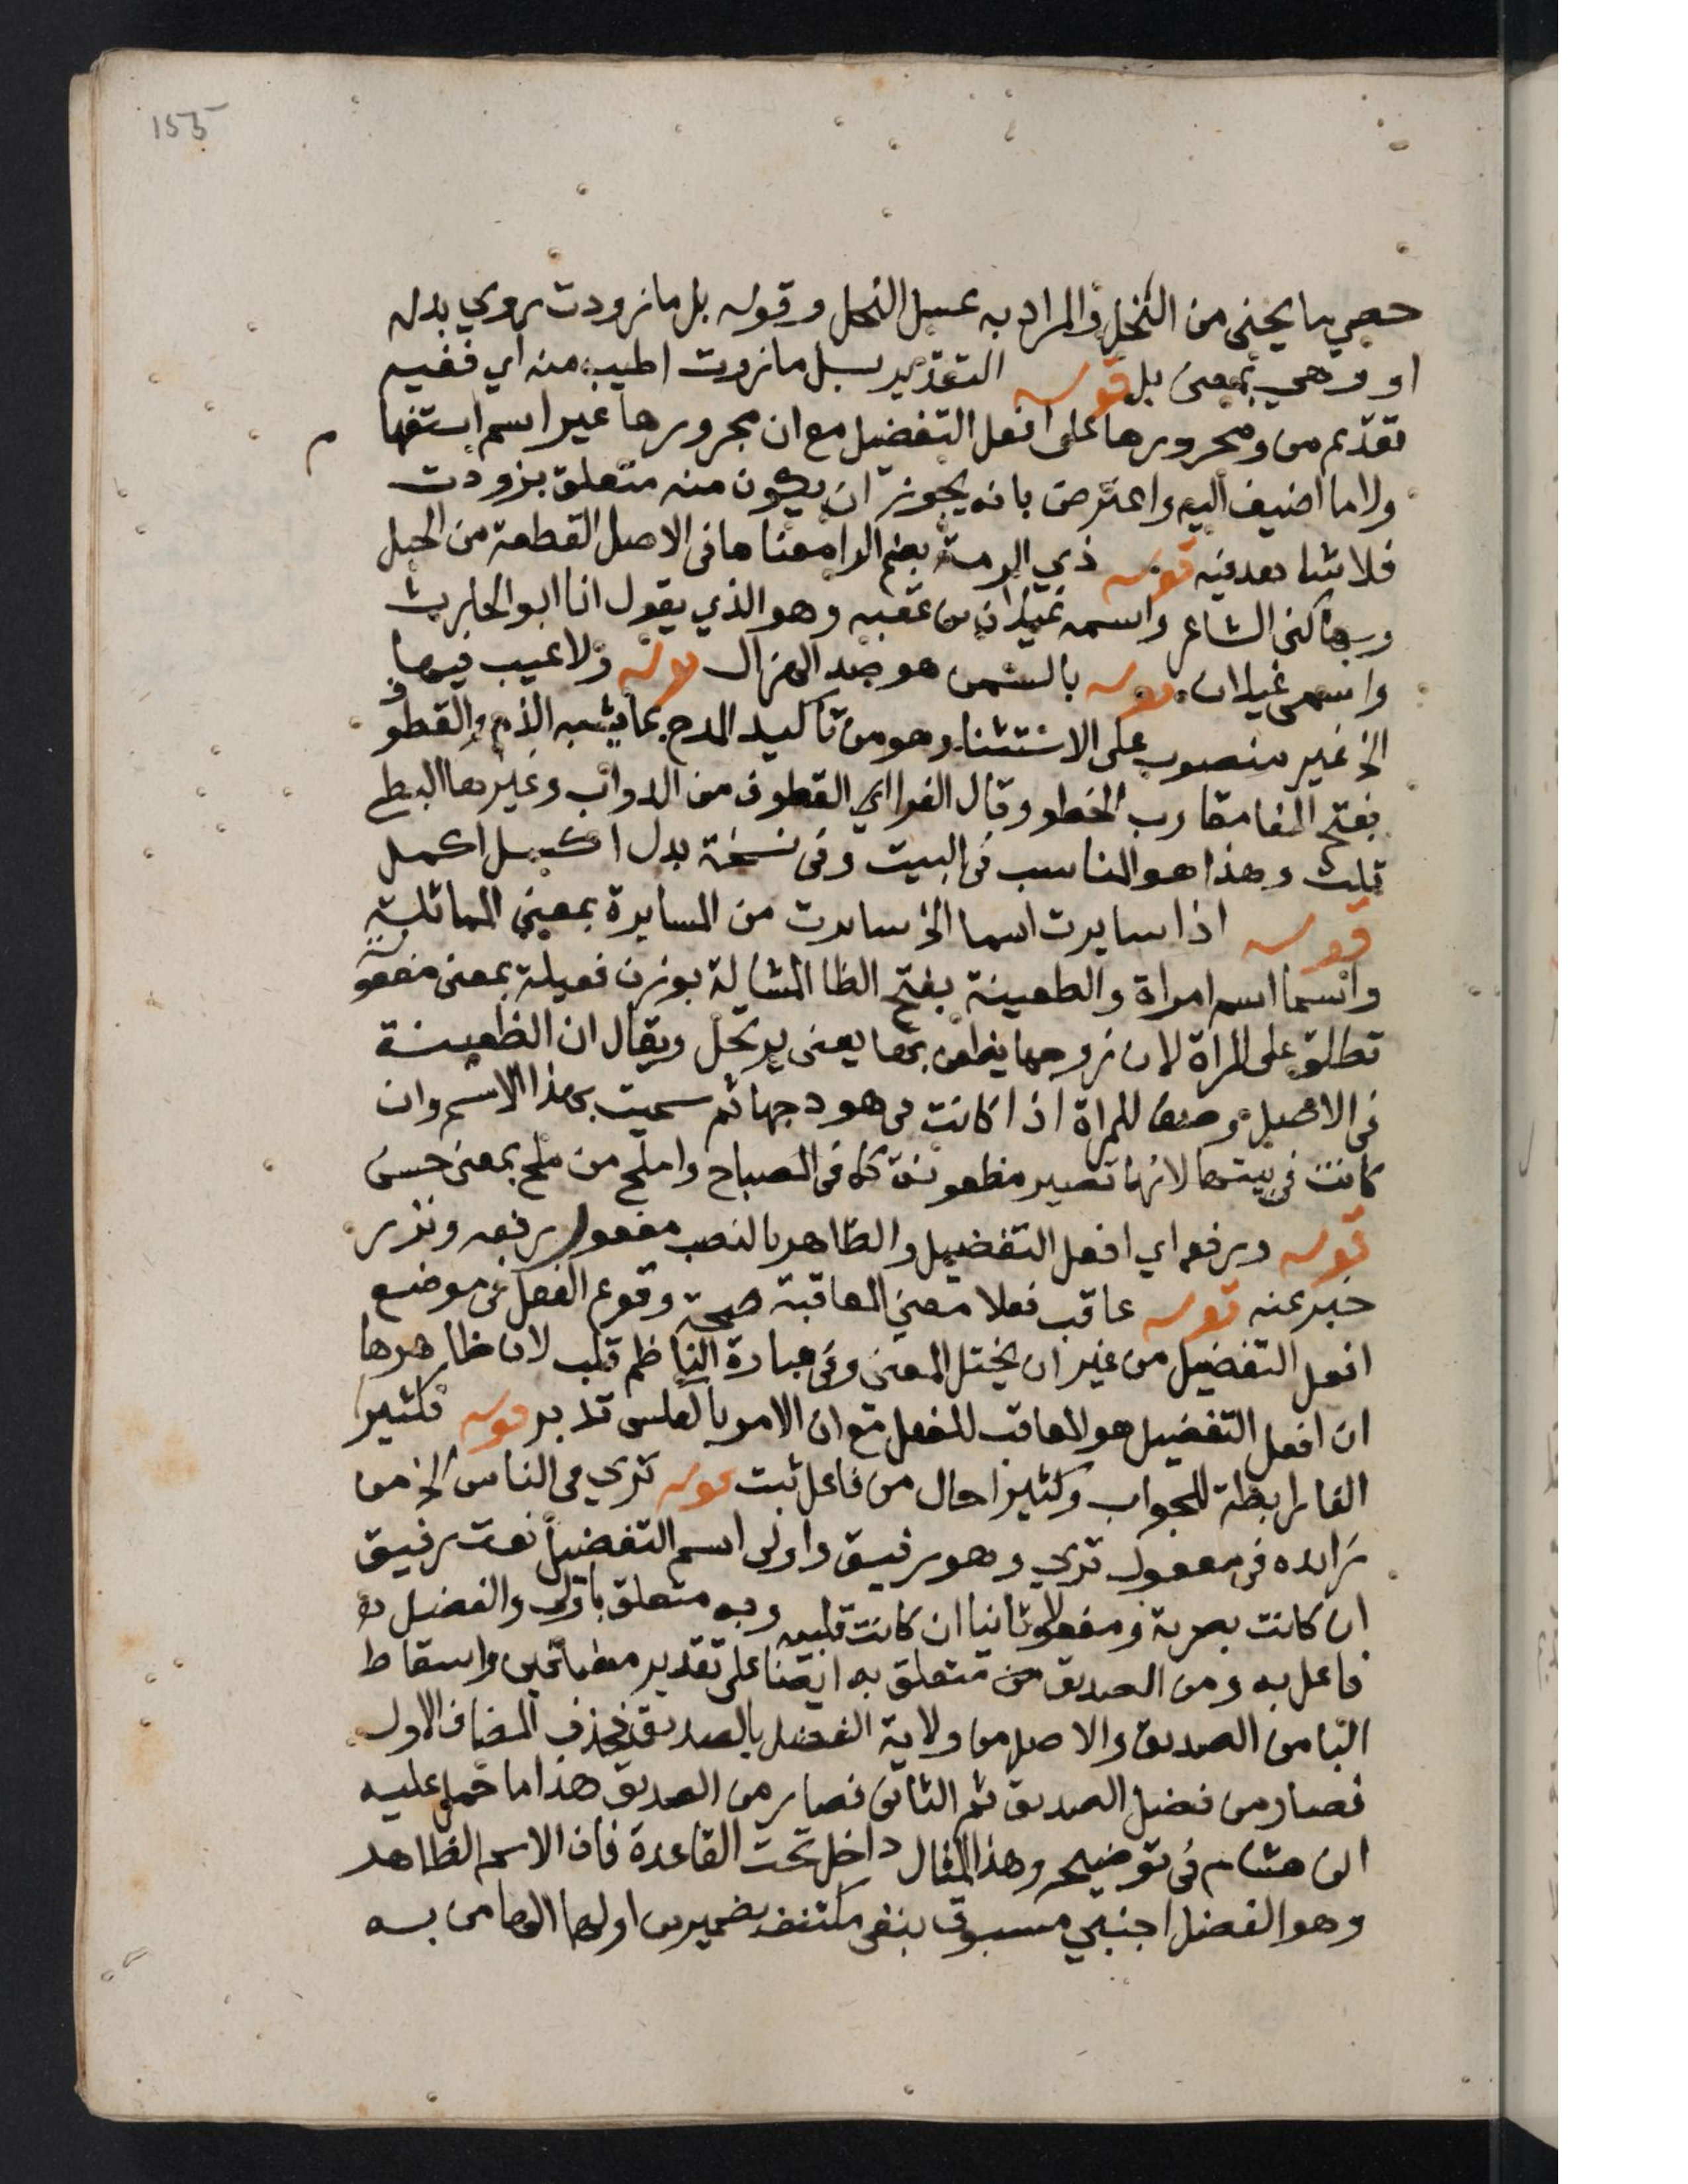 155
ما يجنى من النحل والمراد به عسل النحل وقوله بل ما زودت يروي بدله
او وهي بمعنى بل قوله التقدير بل ما زودت اطيب منه اي ففيه
تقديم من ومجرورها على افعل التفضيل مع ان مجرورها غير اسم استفها م
ولا ما اضيف اليه واعترض بانه يجوز ان يكون منه متعلق بزودت
فلا شاهد فيه قوله ذي الرمة بضم الرا معناها فى الاصل القطعة من الحبل
وبها كنى الشاعر واسمه غيلان بن عقبه وهو الذي يقول انا ابو الحارث
واسمى غيلان قوله بالسمن هو ضد الهزال قوله ولا عيب فيها
الخ غير منصوب على الاستثنا وهو من تاكيد المدح بما يشبه الذم والقطوف
بفتح القا مقارب الخطو وقال الفرا اي القطوف من الدواب وغيرها البطئ
قلت وهذا هو المناسب فى البيت وفى نسخة بدل اكسل اكمل
قوله اذا سايرت اسما الخ سايرت من المسايرة بمعنى المماثلة
واسما اسم امراة والظعينة بفتح الظا المشالة بوزن فعيلة بمعنى مفعولة
تطلق على المراة لان زوجها يظعن بها يعنى يرتحل ويقال ان الظعينة
فى الاصل وصف للمراة اذا كانت فى هودجها ثم سميت بهذا الاسم وان
كانت فى بيتها لانها تصير مظعونة كذا فى المصباح واملح من ملح بمعنى حسن
قوله ورفعه اي افعل التفضيل والظاهر بالنصب مفعول برفعه ونزر
خبر عنه قوله عاقب فعلا معنى المعاقبة صحة وقوع الفعل فى موضع
افعل التفضيل من غير ان يختل المعنى وفى عبارة الناظم قلب لان ظاهرها
ان افعل التفضيل هو المعاقب للفعل مع ان الامر بالعكس تدبر قوله فكثيرا
الفا رابطة للجواب وكثيرا حال من فاعل ثبت قوله ترى فى الناس الخ من
زايده فى مفعول ترى وهو رفيق واولى اسم التفضيل نعت رفيق
ان كانت بصرية ومفعولا ثانيا ان كانت قلبيه وبه متعلق باولى والفضل
فاعل به ومن الصديق من متعلق به ايضا على تقدير مضافين واسقاط
البا من الصديق والاصل من ولاية الفضل بالصديق فحذف المضاف الاول
فصار من فضل الصديق ثم الثانى فصار من الصديق هذا ما حمل عليه
ابن هشام فى توضيحه وهذا المثال داخل تحت القاعدة فان الاسم الظاهر
وهو الفضل اجنبي مسبوق بنفى مكتنف بضميرين اولهما الها من به